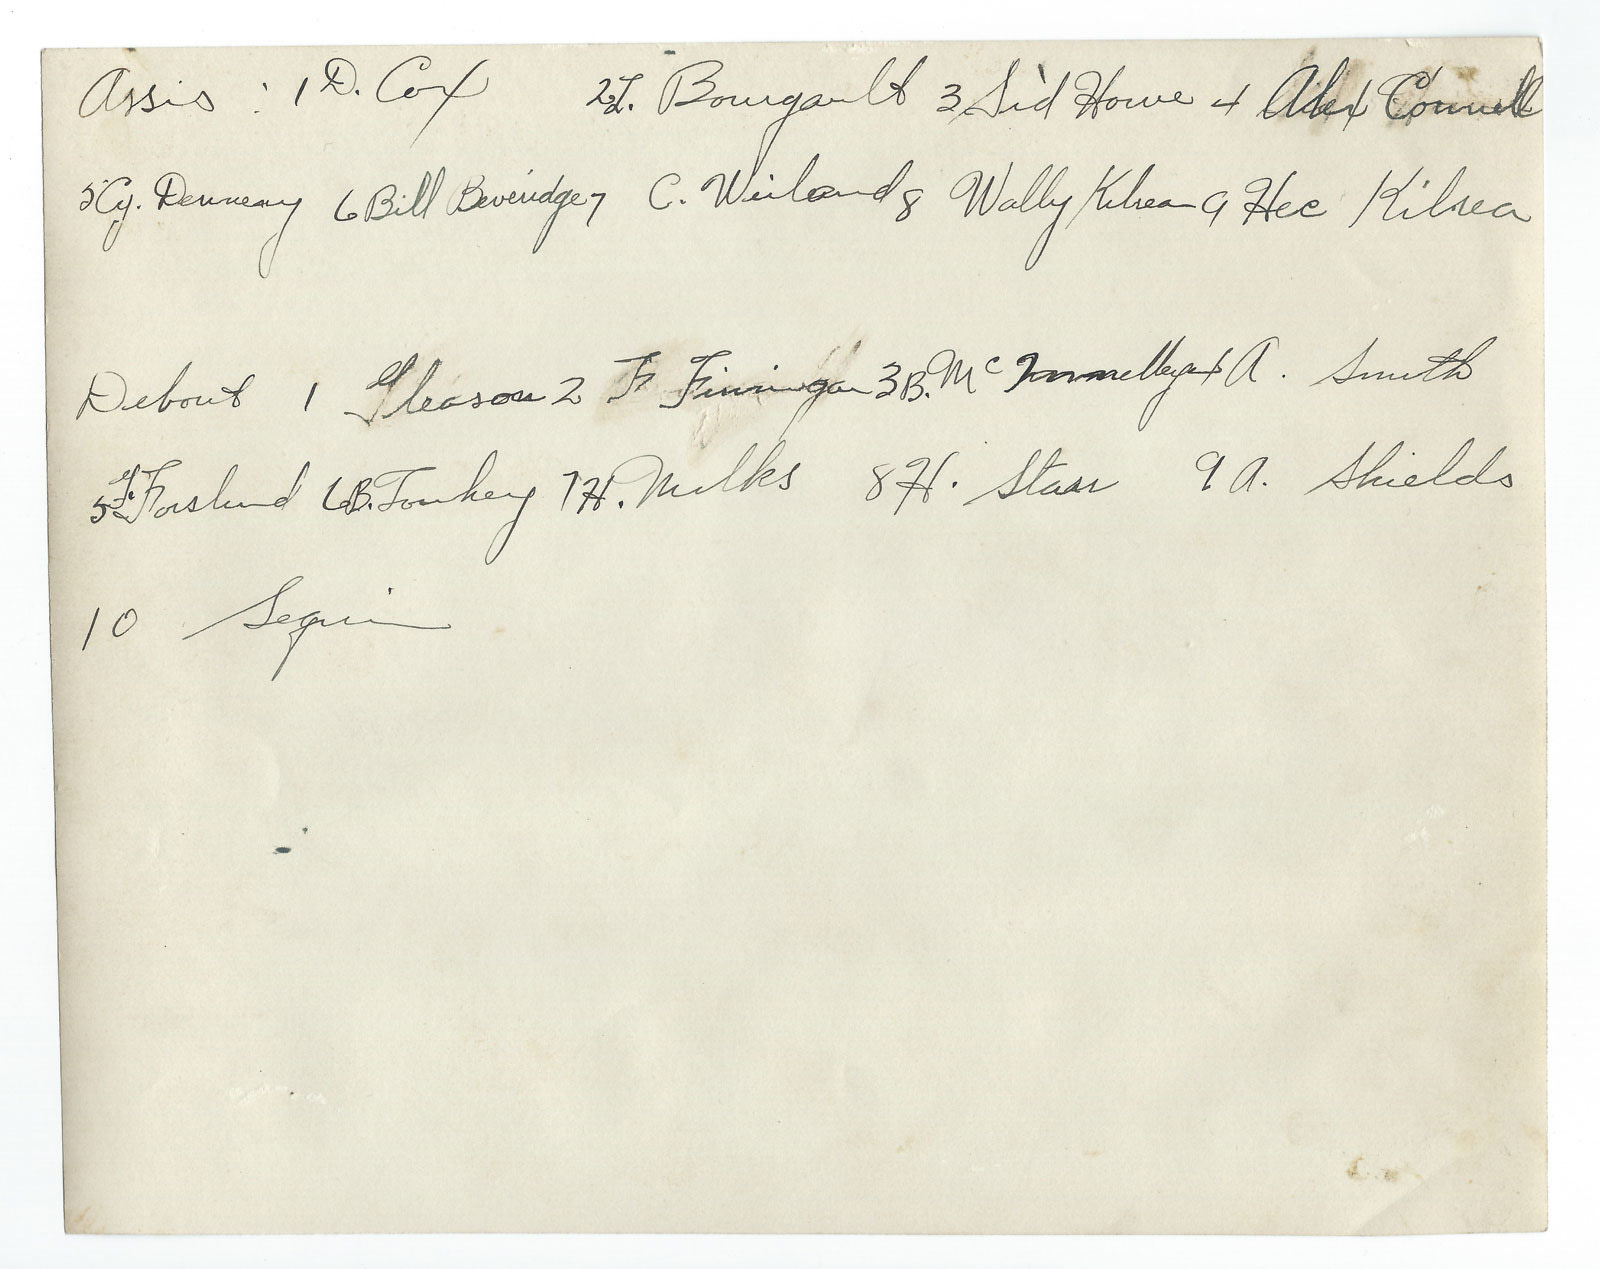 Assis : 1 D. Cox 2 L. Bourgault 3 Sid Howe 4 Alex Connell
5 Cy. Denneny 6 Bill Beveridge 7 C. Weiland 8 Wally Kilrea 9 Hec Kilrea
Debout 1 Gleason 2 F Finnigan 3 B. Mc 4 A. Smith
5 G. Forslund 6 B. Touhey 7 H. Milks 8 H. Starr 9 A. Shields
10 Seguin